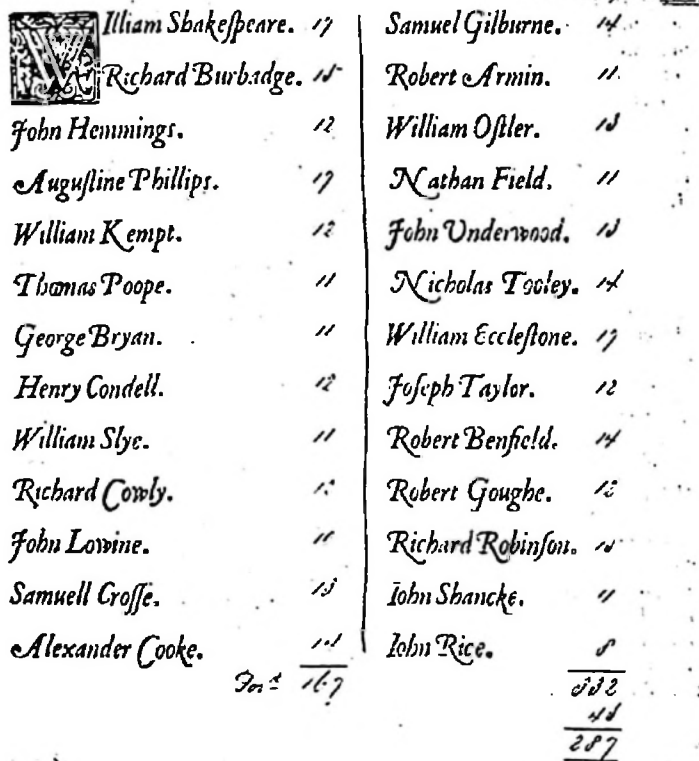 William Shakeſpeare. 17
Richard Burbadge. 15
John Hemmings. 12
Auguſtine Phillips. 17
William Kempt. 12
Thomas Poope. 11
George Bryan. 11
Henry Condell. 12
William Slye. 11
Richard Cowly. 12
John Lowine. 10
Samuell Croſſe. 13
Alexander Cooke. 14
167
Samuel Gilburne. 14
Robert Armin. 11
William Oſtler. 13
Nathan Field. 11
John Underwood. 13
Nicholas Tooley. 14
William Eccleſtone. 17
Joſeph Taylor. 12
Robert Benfield. 14
Robert Goughe. 12
Richard Robinſon. 15
Iohn Shancke. 11
Iohn Rice. 8
332
45
287